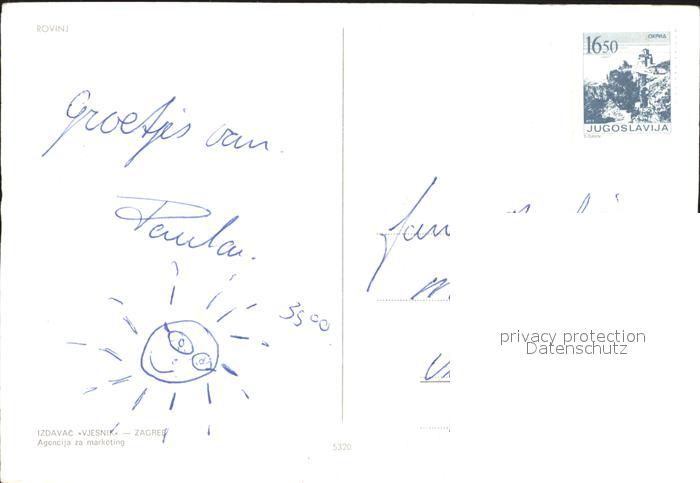 ROVINJ
1650
ОХРИД
JUGOSLAVIJA
Groetjes van
Paula.
3500
fam
IZDAVAČ »VJESNIK« — ZAGREB
Agencija za marketing
5320
privacy protection
Datenschutz